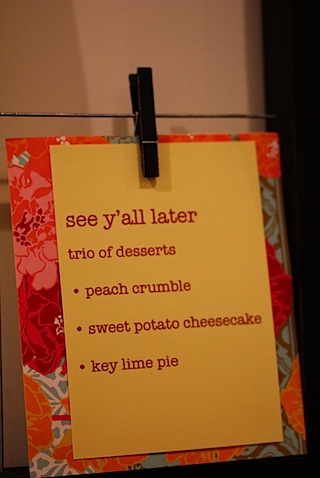 see y'all later
trio of desserts
• peach crumble
• sweet potato cheesecake
• key lime pie